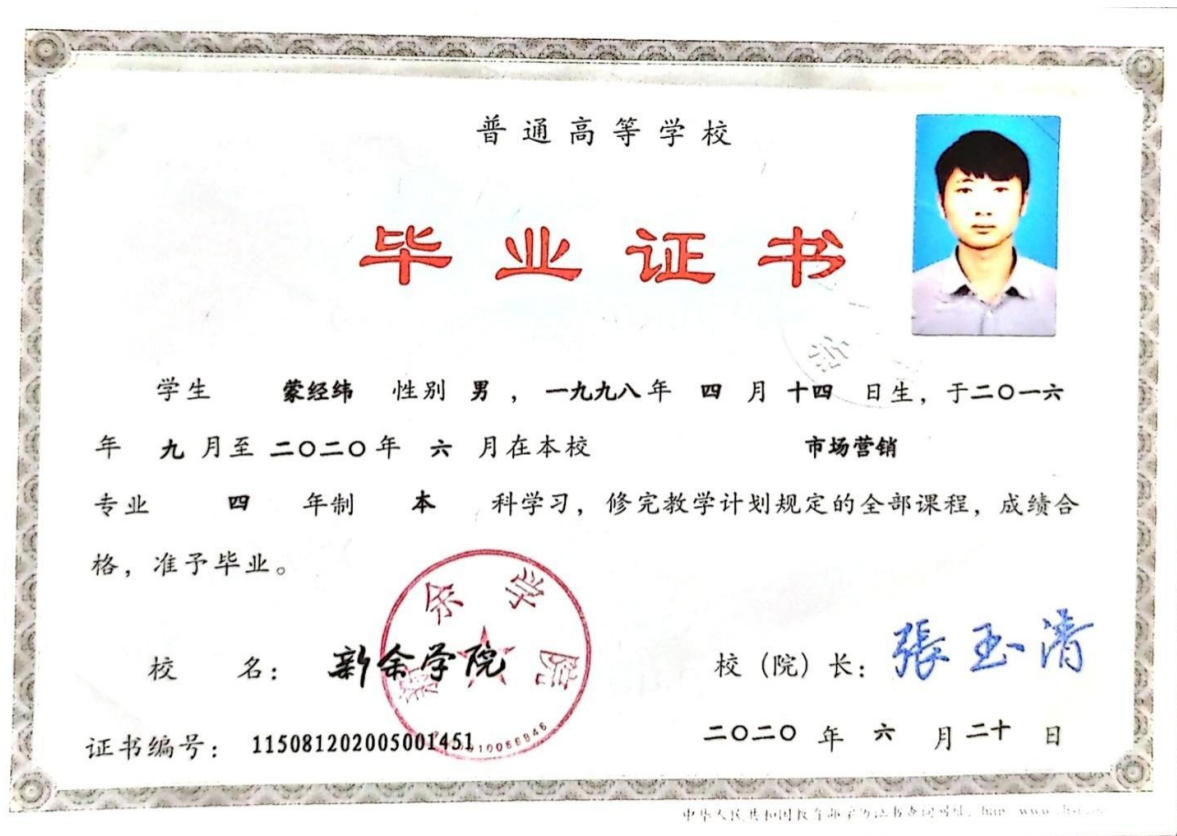 普通高等学校
毕业证书
学生 蒙经纬 性别 男 ，一九九八年 四 月 十四 日生，于二〇一六
年 九 月至 二〇二〇年 六 月在本校 市场营销
专业 四 年制 本 科学习，修完教学计划规定的全部课程，成绩合
格，准予毕业。
新余学院
校 名： 新余学院 校（院）长： 張玉清
证书编号： 115081202005001451 二〇二〇 年 六 月 二十 日
中华人民共和国教育部学历证书查询网址：